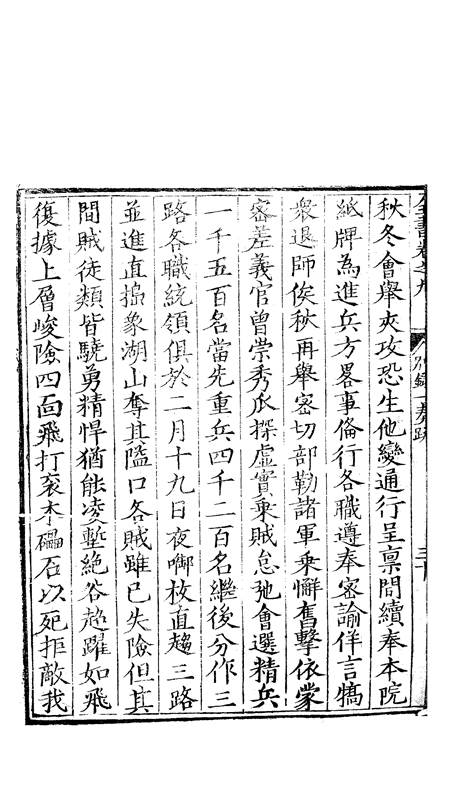 全書卷之九 別錄一奏疏 三十
秋冬會舉夾攻恐生他變通行呈稟間續奉本院
紙牌為進兵方畧事備行各職遵奉密諭佯言犒
衆退師俟秋再舉密切部勒諸軍乘懈奮擊依蒙
密差義官曾崇秀爪探虛實乗賊怠弛會選精兵
一千五百名當先重兵四千二百名繼後分作三
路各職統領俱於二月十九日夜啣枚直趨三路
並進直搗象湖山奪其隘口各賊雖已失險但其
間賊徒類皆驍勇精悍猶能凌塹絕谷超躍如飛
復據上層峻險四面飛打衮木礧石以死拒敵我